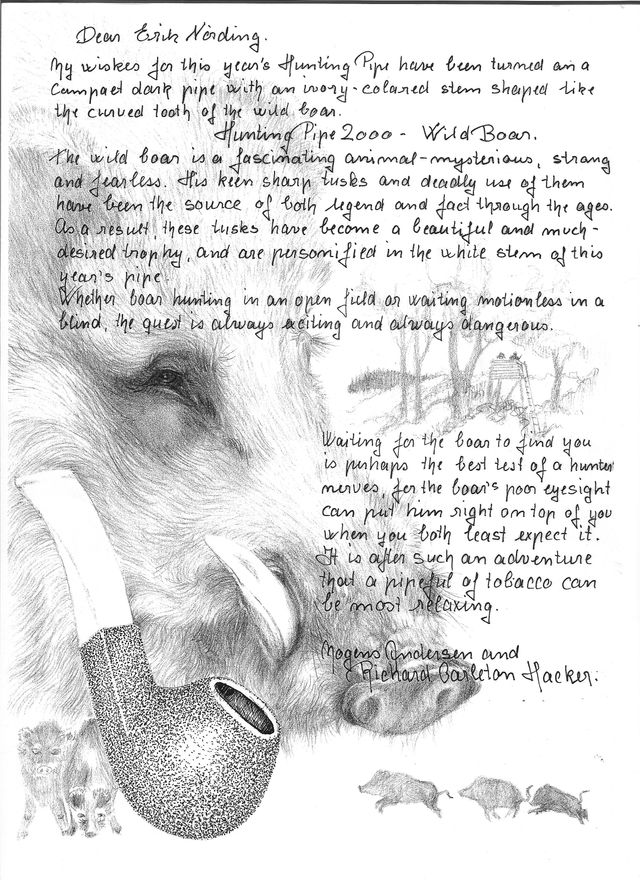 Dear Erik Nörding.
My wiskes for this year's Hunting Pipe have been turned ana
Compact dark pipe with an ivory-colared stem shaped like
the curved tooth of the wild boar.
Hunting Pipe 2000 - Wild Boar.
The wild boar is a fascinating animal-mysterious, strong
and fearless. His keen sharp tusks and deadly use of them
have been the source of both legend and fact through the ages.
As a result, these tusks have become a beautiful and much-
desired trophy, and are personified in the white stem of this
year's pipe.
Whether boar hunting in an open field or waiting motionless in a
blind, the quest is always exciting and always dangerous.
Waiting for the boar to find you
is perhaps the best test of a hunter
nerves, for the boar's poor eyesight
can put him right on top of you
when you both least expect it.
It is after such an adventure
that a pipeful of tobacco can
be most relaxing.
Mogens Andersen and
Richard Carleton Hacker.